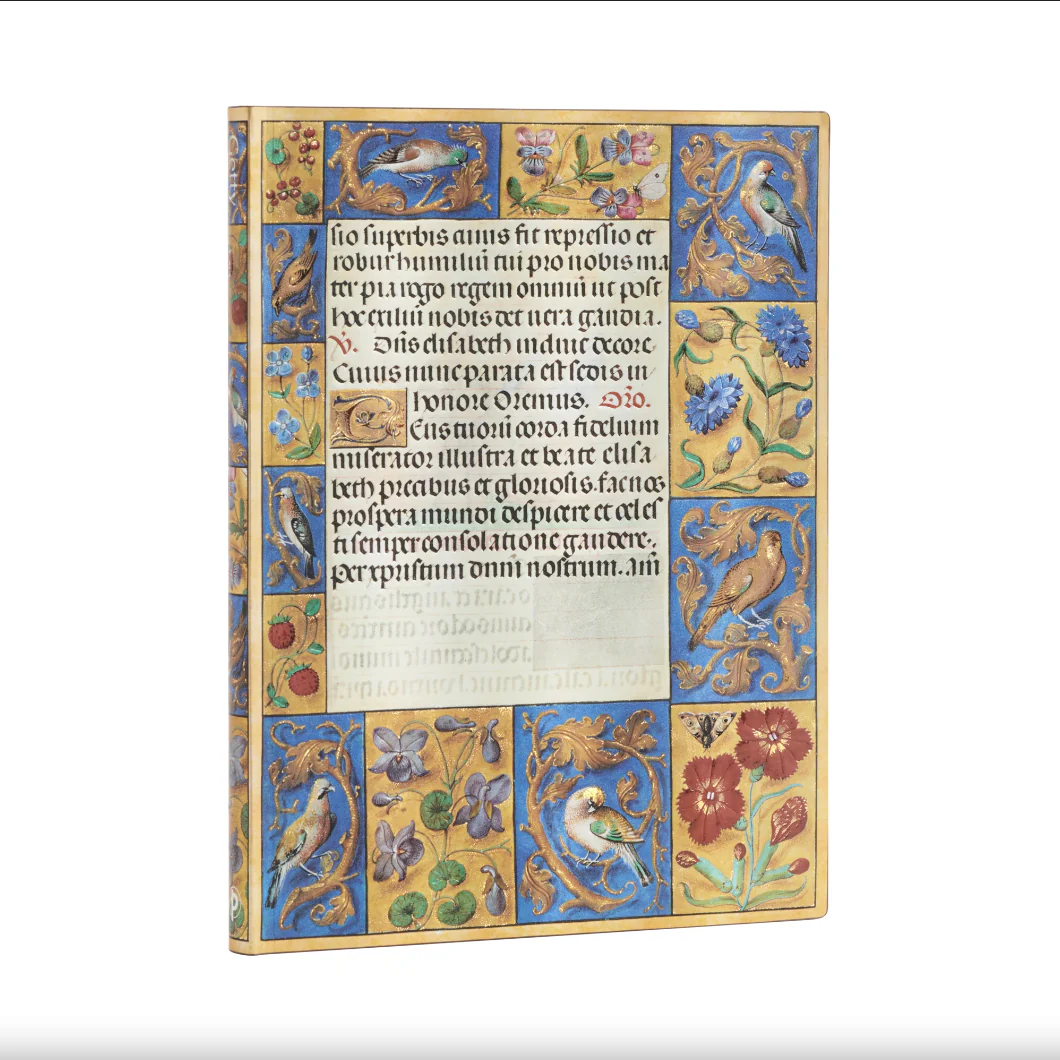 sio superbis cuius fit repressio et
robur humiliū tu pro nobis ma
ter pia rogo regem omniū ut post
hoc exiliū nobis det uera gaudia.
V. Diffusa est gratia
Cuius nunc parata est sedis in
honore Oremus. Oro.
corda fidelium
miserator illustra et beate elisa
beth precibus et gloriosis. fac nos
prospera mundi despicere et celes
ti semper consolatione gaudere.
Per xpristum dnm̄ nostrum. am̄